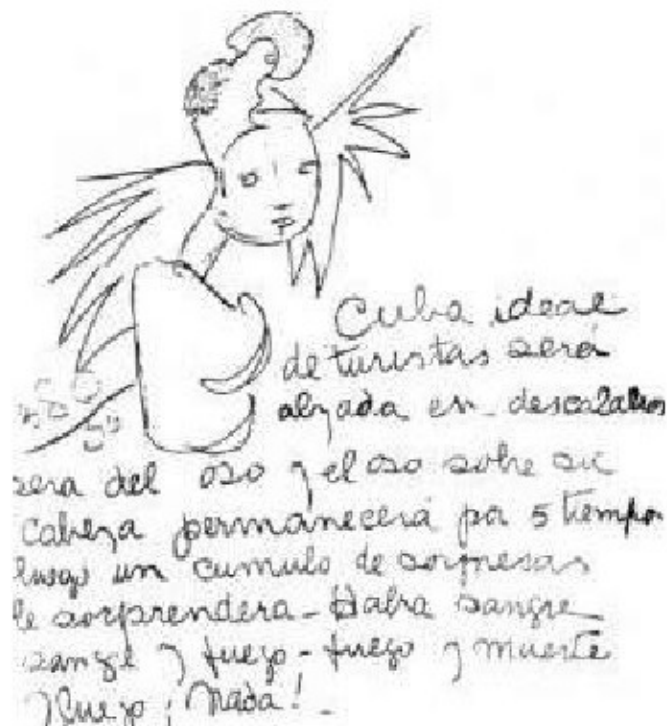 Cuba ideal
de turistas será
alzada en descalabros
sera del oso y el oso sobre su
cabeza permanecerá por 5 tiempos
luego un cumulo de sorpresas
le sorprendera - Habra sangre
sangre y fuego - fuego y muerte
y luego ¡Nada!